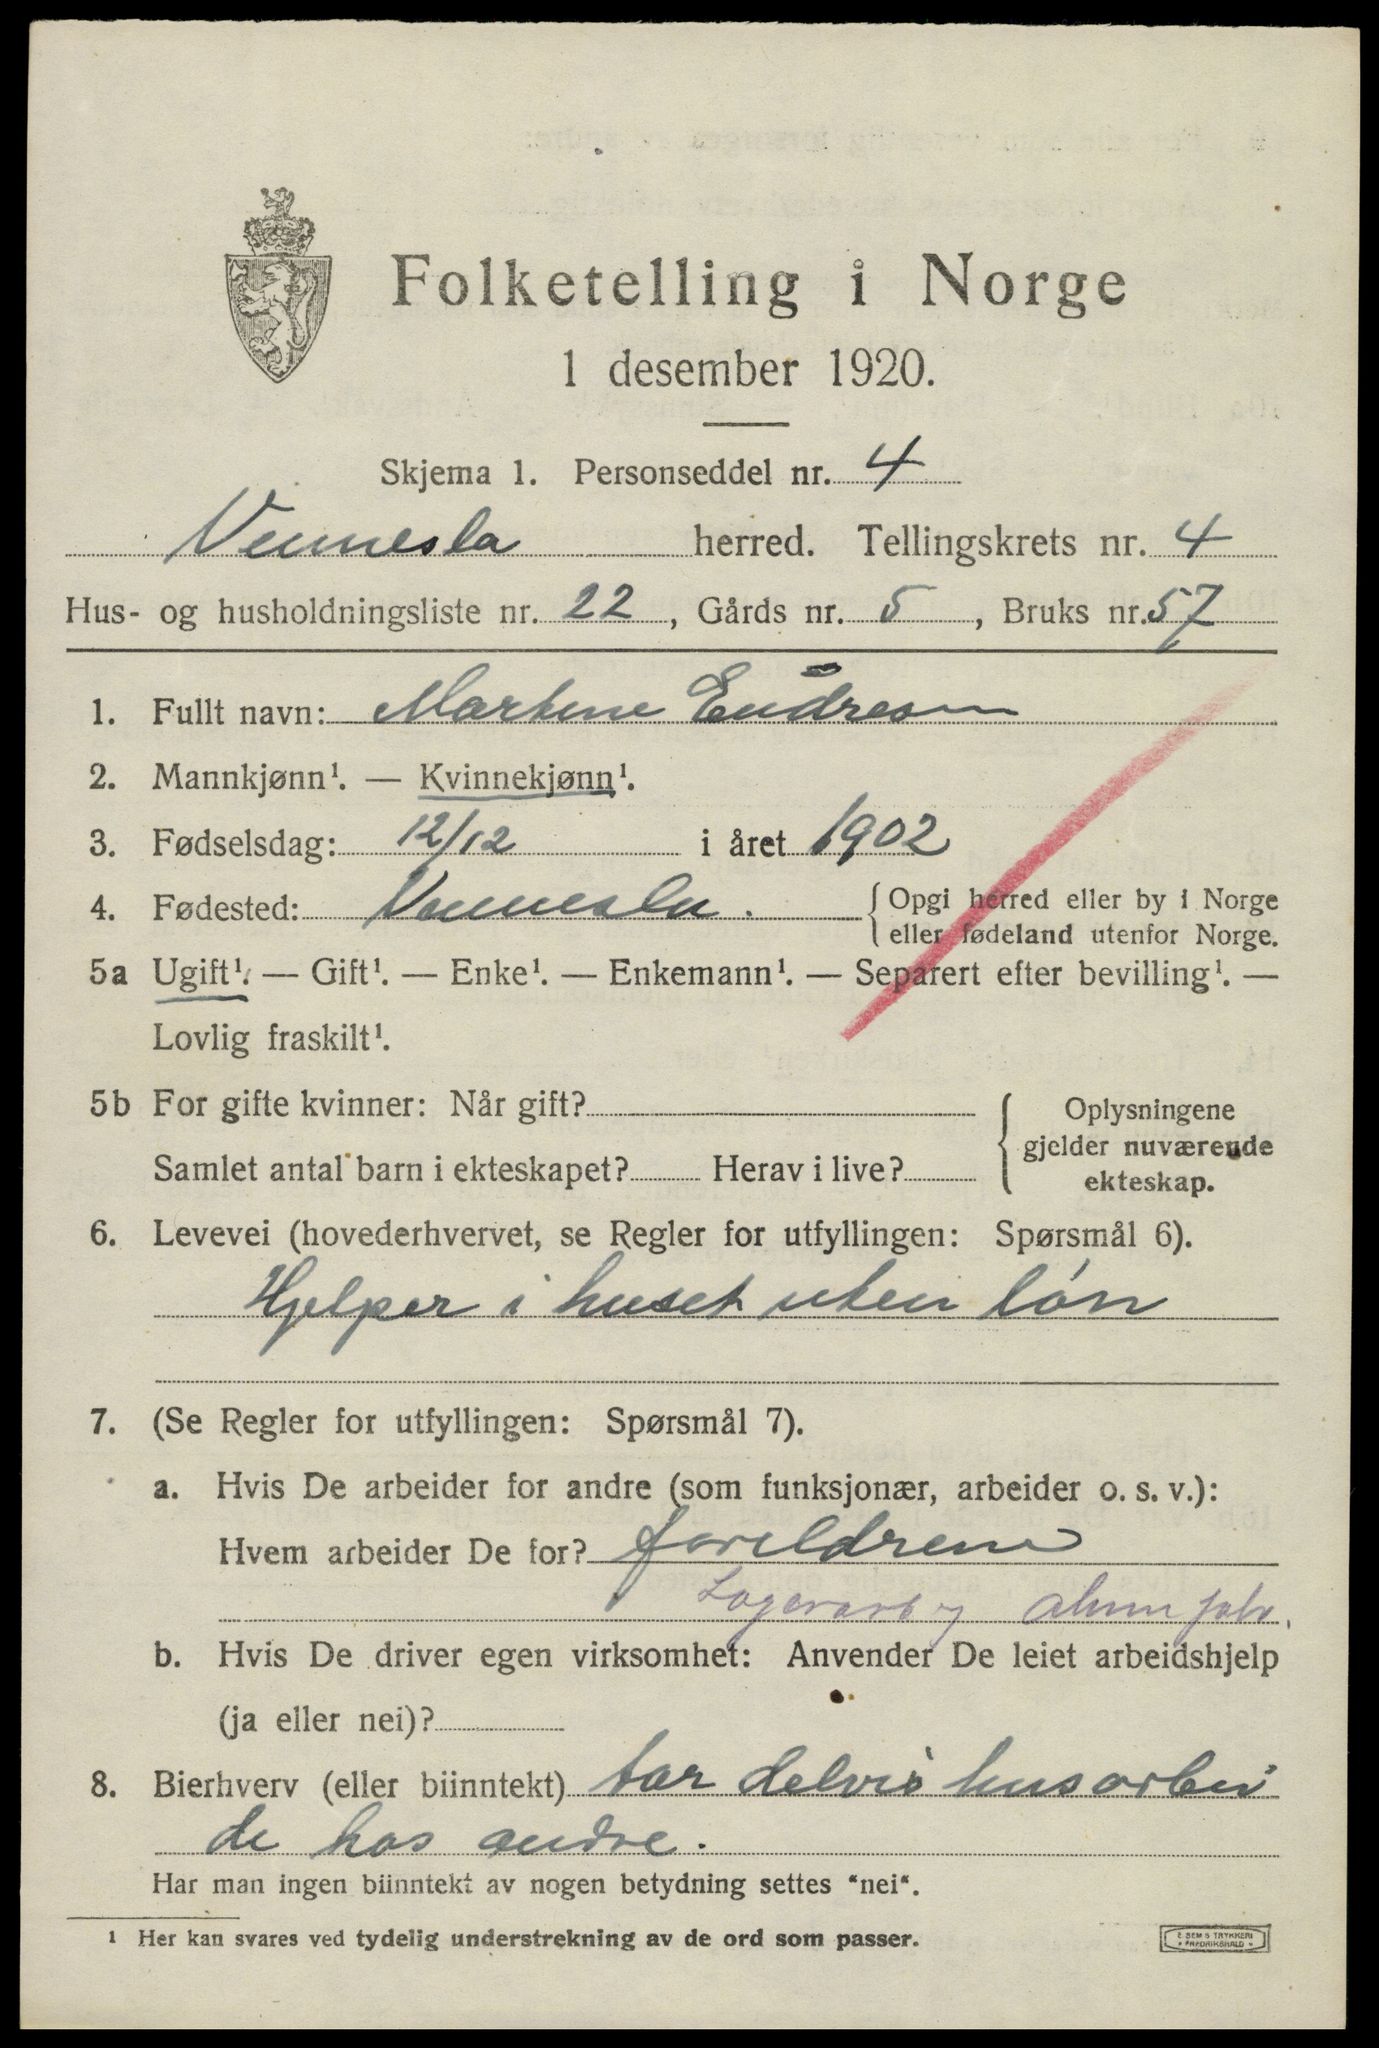 Folketelling i Norge
1 desember 1920.
Skjema 1. Personseddel nr. 4
Vennesla herred. Tellingskrets nr. 4
Hus- og husholdningsliste nr. 22, Gårds nr. 5, Bruks nr. 57
1. Fullt navn: Martine Eudresen
2. Mannkjønn¹. — Kvinnekjønn¹.
3. Fødselsdag: 12/12 i året 1902
4. Fødested: Vennesla. { Opgi herred eller by i Norge
eller fødeland utenfor Norge.
5a Ugift¹. — Gift¹. — Enke¹. — Enkemann¹. — Separert efter bevilling¹. —
Lovlig fraskilt¹.
5b For gifte kvinner: Når gift? { Oplysningene
gjelder nuværende
Samlet antal barn i ekteskapet? Herav i live? ekteskap.
6. Levevei (hovederhvervet, se Regler for utfyllingen: Spørsmål 6).
Hjelper i huset uten lón
7. (Se Regler for utfyllingen: Spørsmål 7).
a. Hvis De arbeider for andre (som funksjonær, arbeider o. s. v.):
Hvem arbeider De for? foreldrene
Lagerarb
b. Hvis De driver egen virksomhet: Anvender De leiet arbeidshjelp
(ja eller nei)?
8. Bierhverv (eller biinntekt) tar delvis husarbei
de hos andre.
Har man ingen biinntekt av nogen betydning settes "nei".
¹ Her kan svares ved tydelig understrekning av de ord som passer.
E. SEM'S TRYKKERI
FREDRIKSHALD